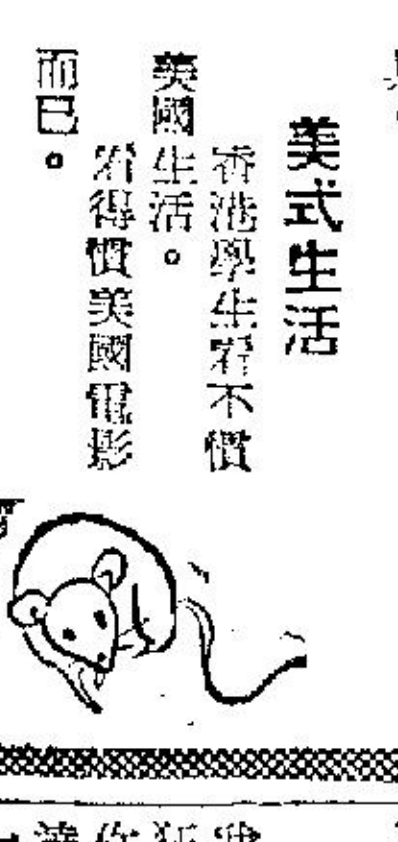 美式生活
香港學生看不慣
美國生活。
看得慣美國電影
而已。